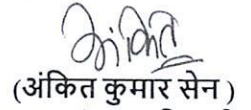 अंकित
(अंकित कुमार सेन)